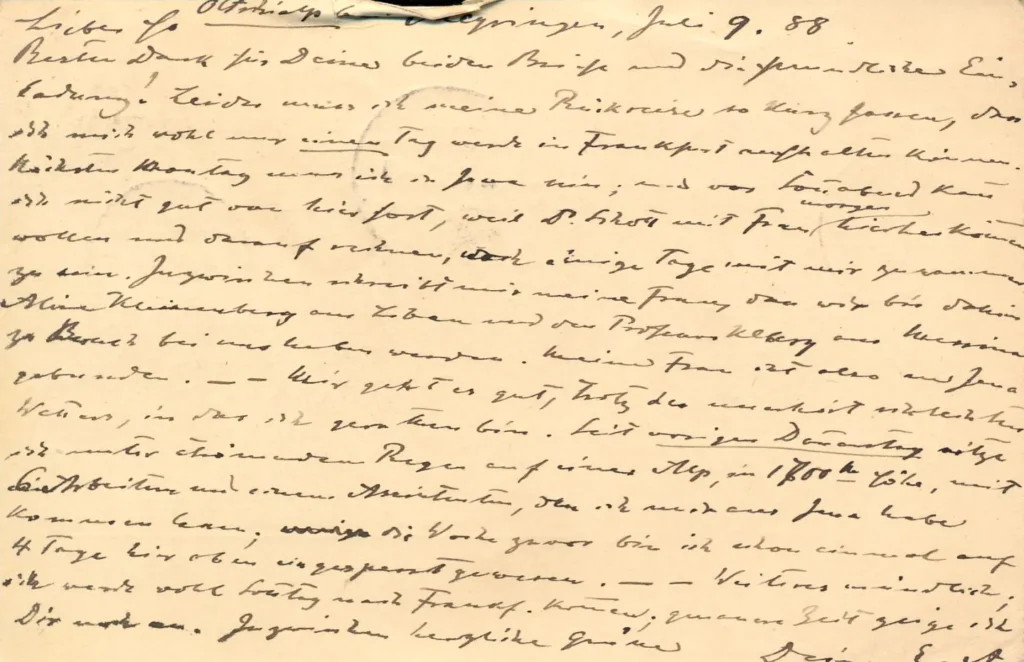 Lieber
Juli 9. 88.
Besten Dank für Deine beiden Briefe und die freundliche Ein-
ladung! Leider muss ich meine Rückreise so kurz fassen, dass
ich mich wohl nur einen Tag werde in Frankfurt aufhalten können.
Nächsten Montag muss ich in Jena sein; und vor Sonnabend kann
ich nicht gut von hier fort, weil Dr. Schott mit Frau morgen hierher kommen
wollen und darauf rechnen, noch einige Tage mit mir zusammen
zu sein. Inzwischen schreibt mir meine Frau, dass wir bis dahin
Aline aus Liban und den Professor aus Messina
zu Besuch bei uns haben werden. Meine Frau ist also an Jena
gebunden. — — Mir geht es gut, trotz des unerhört schlechten
Wetters, in das ich gerathen bin. Seit vorigen Donnerstag sitze
ich unter strömendem Regen auf einer Alp, in 1700 m Höhe, mit
Arbeiten mit einem Assistenten, den ich mir aus Jena habe
kommen lassen; die Woche zuvor bin ich schon einmal auf
4 Tage hier oben eingesperrt gewesen. — — Weiteres mündlich;
ich werde wohl Sontag nach Frankf. kommen; genauere Zeit zeige ich
Dir noch an. Inzwischen herzliche Grüsse
Dein